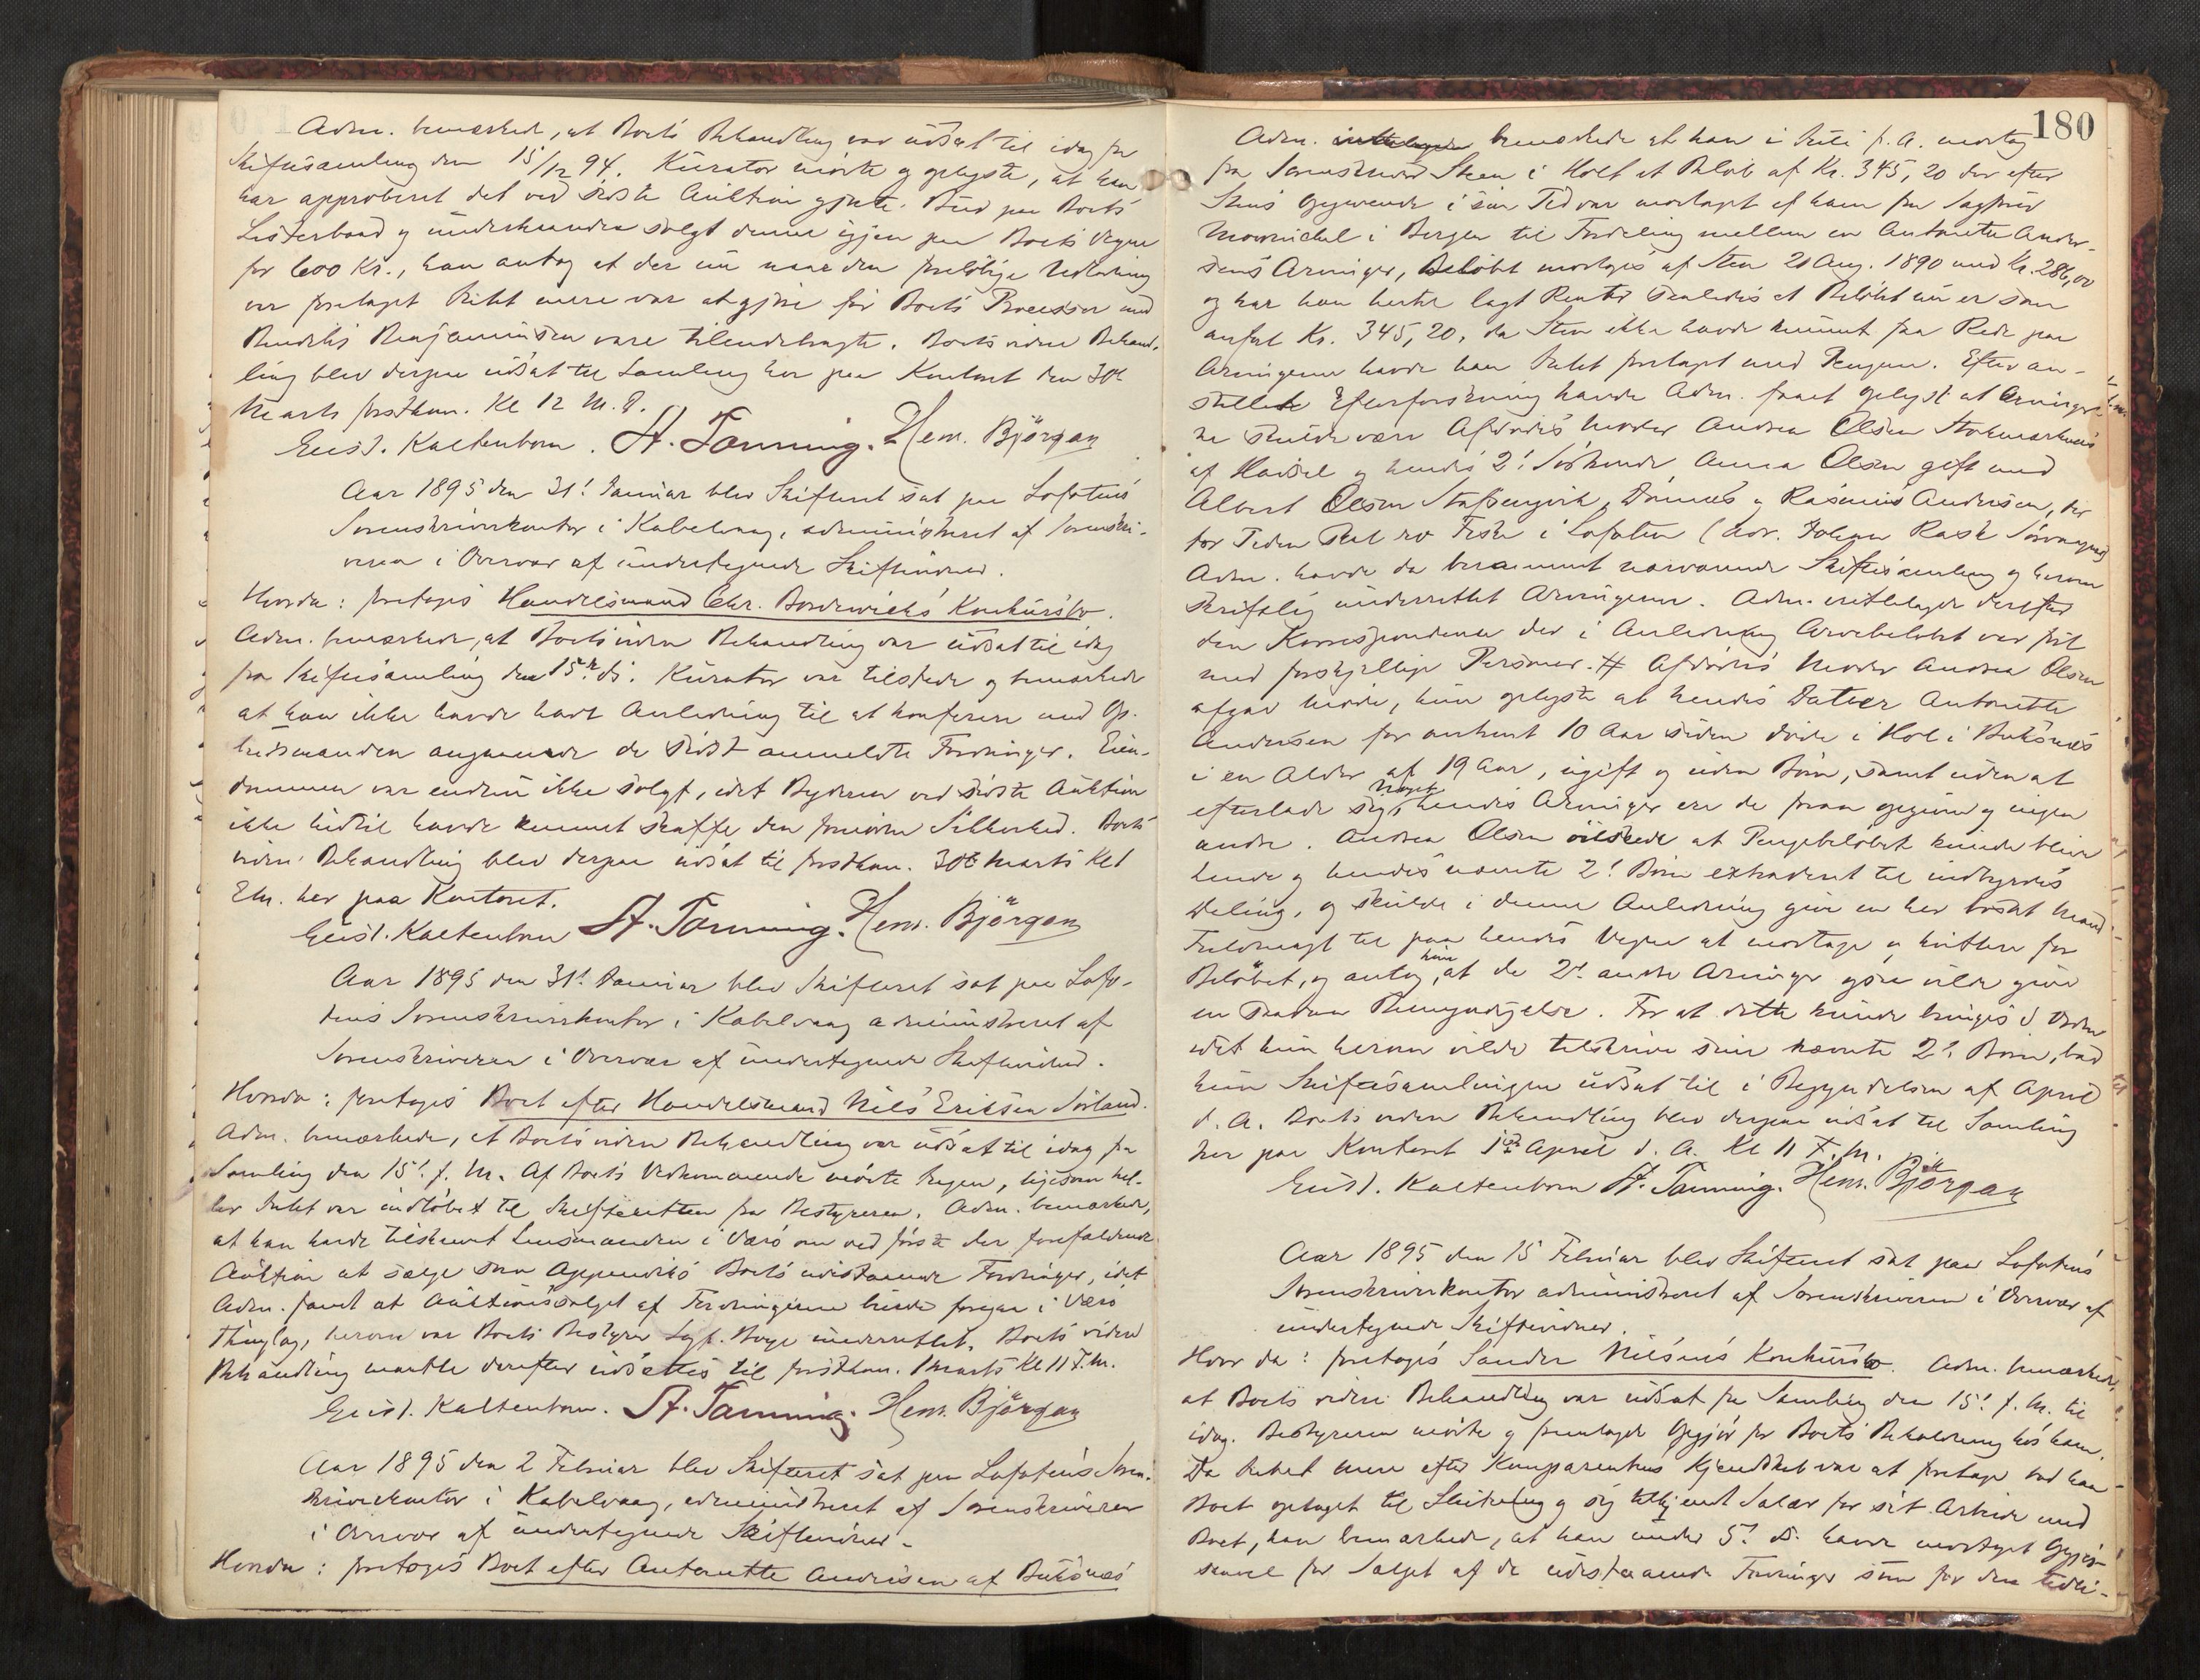 Adm. bemærkede, at Boets Behandling var udsat til idag fra
Skiftesamling den 15/12 94. Kurator mødte og oplyste, at han
har approberet det ved sidste Auktion gjorte Bud paa Boets
Listerbaad og underhaanden solgt denne igjen paa Boets Vegne
for 600 Kr., han antog at der nu naar den foreløbige
var foretaget Intet mere var at gjøre før Boets Processer med
Benjaminsen vare tilendebragte. Boets videre Behand-
ling blev derpaa udsat til Samling her paa Kontoret den 30te
Marts førstkom. Kl 12 M.D.
Gust. Kaltenborn. A. Tønning. Hem. Björgan
Aar 1895 den 31. Januar blev Skifteret sat paa Lofotens
Sorenskriverkontor i Kabelvaag, administreret af Sorenskri-
veren i Overvær af undertegnede Skiftevidner.
Hvorda: foretages Handelsmand Chr. Borderwichs Konkursbo.
Adm. bemærkede, at Boets videre Behandling var udsat til idag
fra Skiftesamling den 15de ds. Kurator var tilstede og bemærkede
at han ikke havde havt Anledning til at konferere med Op-
budsmanden angaaende de sidst anmeldte Fordringer. Eien-
dommen var endnu ikke solgt, idet Byderen ved sidste Auktion
ikke hidtil havde kunnet skaffe den fornødne Sikkerhed. Boets
videre Behandling blev derpaa udsat til førstkom. 30te Marts Kl 1
Em. her paa Kontoret.
Gust. Kaltenborn A. Tønning. Hem. Björgan
Aar 1895 den 31. Januar blev Skifteret sat paa Lofo-
tens Sorenskriverkontor i Kabelvaag administreret af
Sorenskriveren i Overvær af undertegnede Skiftevidner.
Hvorda: foretages Boet efter Handelsmand Nils Eriksen Sørland.
Adm. bemærkede, at Boets videre Behandling var udsat til idag fra
Samling den 15. f. M. Af Boets Vedkommende mødte Ingen, ligesom hel-
ler Intet var indløbet til Skifteretten fra Bestyreren. Adm. bemærkede,
at han havde tilskrevet Lensmanden i Værø om ved første der forefaldende
Auktion at sælge som Appendix Boets udestaaende Fordringer, idet
Adm. fandt at Auktionssalget af Fordringerne burde foregaa i Værø
Thinglag, herom var Boets Bestyrer Sagf. Boye underrettet. Boets videre
Behandling maatte derefter udsættes til førstkom. 1 Marts Kl 11 F.M.
Gust. Kaltenborn. A. Tønning. Hem. Björgan
Aar 1895 den 2 Februar blev Skifteret sat paa Lofotens Soren-
skriverkontor i Kabelvaag, administreret af Sorenskriveren
i Overvær af undertegnede Skiftevidner.
Hvorda: foretages Boet efter Antonette Andersen af Buksnæs
180
Adm. bemærkede at han i Juli f. A. modtog
fra Sorenskriver Steen i Holt et Beløb af Kr. 345,20 der efter
Steens Opgivende i sin Tid var modtaget af ham fra Sagfører
i Bergen til Fordeling mellem en Antonette Ander-
sens Arvinger, Beløbet modtoges af Sten 20 Aug. 1890 med Kr. 286,00
og har han hertil lagt Renter saaledes at Beløbet nu er som
anført Kr. 345,20, da Sten ikke havde kunnet faa Rede paa
Arvingerne havde han Intet foretaget med Pengene. Efter an-
stillede Efterforskning havde Adm. faaet oplyst at Arvinger-
ne skulde være Afdødes Moder Andrea Olsen Stokmarknæs
af Hadsel og hendes 2 Søskende Anna Olsen gift med
Albert Olsen Dønnes og Rasmus Andersen, der
for Tiden skal ro Fiske i Lofoten (Adr. Johan Rask Sørvaagen)
Adm. havde da berammet nærværende Skiftesamling og herom
skriftlig underrettet Arvingerne. Adm. fremlagde derefter
den Korrespondence der i Anledning Arvebeløbet var ført
med forskjellige Personer. Afdødes Moder Andrea Olsen
afgav Møde, hun oplyste at hendes Datter Antonette
Andersen for omtrent 10 Aar siden døde i Hol i Buksnæs
i en Alder af 19 Aar, ugift og uden Børn, samt uden at
efterlade sig Noget, hendes Arvinger ere de foran opgivne og ingen
andre. Andrea Olsen ønskede at Pengebeløbet kunde blive
hende og hendes nævnte 2 Børn extraderet til indbyrdes
Deling, og skulde i denne Anledning give en her bosat Mand
Fuldmagt til paa hendes Vegne at modtage og kvittere for
Beløbet, og antog hun, at de 2 andre Arvinger ogsaa vilde give
en saadan Bemyndigelse. For at dette kunde bringes i Orden
idet hun herom vilde tilskrive sine nævnte 2 Børn, bad
hun Skiftesamlingen udsat til i Begyndelsen af April
d. A. Boets videre Behandling blev derpaa udsat til Samling
her paa Kontoret 1ste April d. A. Kl 11 F.M.
Gust. Kaltenborn A. Tønning. Hem. Björgan
Aar 1895 den 15 Februar blev Skifteret sat paa Lofotens
Sorenskriverkontor administreret af Sorenskriveren i Overvær af
undertegnede Skiftevidner.
Hvor da: foretages Sander Nilsens Konkursbo. Adm. bemærkede
at Boets videre Behandling var udsat fra Samling den 15. f. M. til
idag. Bestyreren mødte og fremlagde Opgjør for Boets Beholdning hos ham.
Da Intet mere efter Komparentens Kjendskab var at foretage bad han
Boet optaget til Slutning og sig tilkjendt Salær for sit Arbeide med
Boet, han bemærkede, at han under 5. ds. havde modtaget Opgjør
saavel for Salget af de udestaaende Fordringer som for den